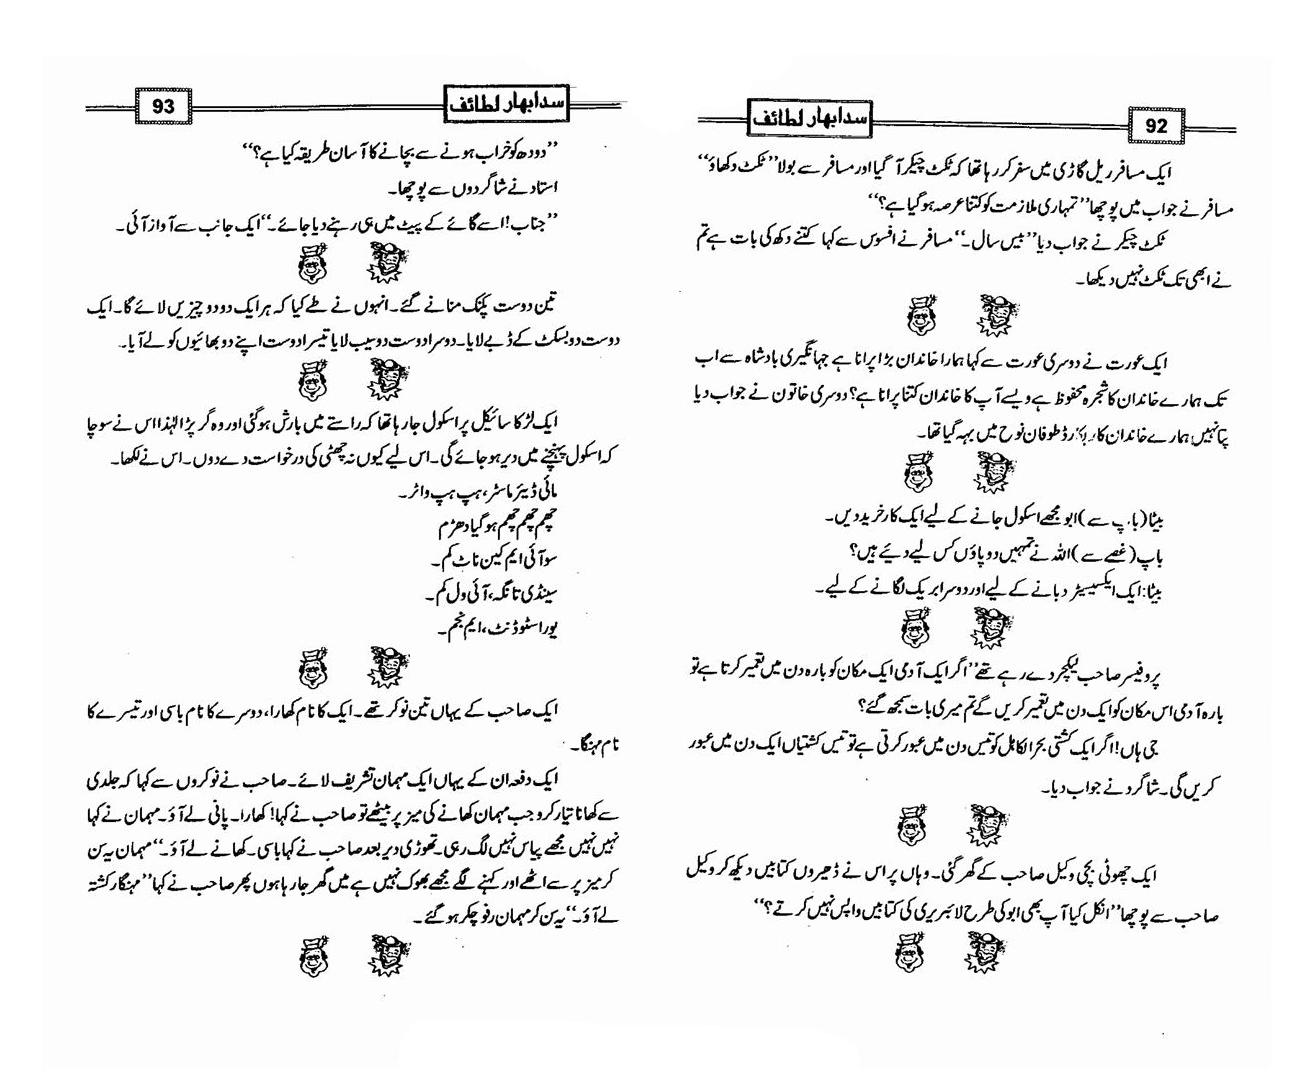 92
سدابہار لطائف
ایک مسافر ریل گاڑی میں سفر کر رہا تھا کہ ٹکٹ چیکر آ گیا اور مسافر سے بولا ’’ٹکٹ دکھاؤ‘‘
مسافر نے جواب میں پوچھا ’’تمہاری ملازمت کو کتنا عرصہ ہو گیا ہے؟‘‘
ٹکٹ چیکر نے جواب دیا ’’بیس سال۔‘‘ مسافر نے افسوس سے کہا کتنے دکھ کی بات ہے تم
نے ابھی تک ٹکٹ نہیں دیکھا۔
ایک عورت نے دوسری عورت سے کہا ہمارا خاندان بڑا پرانا ہے جہانگیری بادشاہ سے اب
تک ہمارے خاندان کا شجرہ محفوظ ہے ویسے آپ کا خاندان کتنا پرانا ہے؟ دوسری خاتون نے جواب دیا
پتا نہیں ہمارے خاندان کا ریکارڈ طوفان نوح میں بہہ گیا تھا۔
بیٹا (باپ سے) ابو مجھے اسکول جانے کے لیے ایک کار خرید دیں۔
باپ (غصے سے) اللہ نے تمہیں دو پاؤں کس لیے دیئے ہیں؟
بیٹا: ایک ایکسیلیٹر دبانے کے لیے اور دوسرا بریک لگانے کے لیے۔
پروفیسر صاحب لیکچر دے رہے تھے ’’اگر ایک آدمی ایک مکان کو بارہ دن میں تعمیر کرتا ہے تو
بارہ آدمی اس مکان کو ایک دن میں تعمیر کریں گے تم میری بات سمجھ گئے؟
جی ہاں! اگر ایک کشتی بحرالکاہل کو تیس دن میں عبور کرتی ہے تو تیس کشتیاں ایک دن میں عبور
کریں گی۔ شاگرد نے جواب دیا۔
ایک چھوٹی بچی وکیل صاحب کے گھر گئی۔ وہاں پر اس نے ڈھیروں کتابیں دیکھ کر وکیل
صاحب سے پوچھا ’’انکل کیا آپ بھی ابو کی طرح لائبریری کی کتابیں واپس نہیں کرتے؟‘‘
سدابہار لطائف
93
’’دودھ کو خراب ہونے سے بچانے کا آسان طریقہ کیا ہے؟‘‘
استاد نے شاگردوں سے پوچھا۔
’’جناب! اسے گائے کے پیٹ میں ہی رہنے دیا جائے۔‘‘ ایک جانب سے آواز آئی۔
تین دوست پکنک منانے گئے۔ انہوں نے طے کیا کہ ہر ایک دو دو چیزیں لائے گا۔ ایک
دوست دو بسکٹ کے ڈبے لایا۔ دوسرا دوست دو سیب لایا تیسرا دوست اپنے دو بھائیوں کو لے آیا۔
ایک لڑکا سائیکل پر اسکول جا رہا تھا کہ راستے میں بارش ہو گئی اور وہ گر پڑا لہٰذا اس نے سوچا
کہ اسکول پہنچنے میں دیر ہو جائے گی۔ اس لیے کیوں نہ چھٹی کی درخواست دے دوں۔ اس نے لکھا۔
مائی ڈیئر ماسٹر، ہپ ہپ واٹر۔
چھم چھم چھم ہو گیا دھڑم
سو آئی ایم کین ناٹ کم۔
سینڈی تانگہ، آئی ول کم۔
یور اسٹوڈنٹ، ایم نجم۔
ایک صاحب کے یہاں تین نوکر تھے۔ ایک کا نام کھارا، دوسرے کا نام باسی اور تیسرے کا
نام مہنگا۔
ایک دفعہ ان کے یہاں ایک مہمان تشریف لائے۔ صاحب نے نوکروں سے کہا کہ جلدی
سے کھانا تیار کرو جب مہمان کھانے کی میز پر بیٹھے تو صاحب نے کہا! کھارا۔ پانی لے آؤ۔ مہمان نے کہا
نہیں نہیں مجھے پیاس نہیں لگ رہی۔ تھوڑی دیر بعد صاحب نے کہا باسی۔ کھانے لے آؤ۔‘‘ مہمان یہ سن
کر میز پر سے اٹھے اور کہنے لگے مجھے بھوک نہیں ہے میں گھر جا رہا ہوں پھر صاحب نے کہا ’’مہنگا رکشتہ
لے آؤ۔‘‘ یہ سن کر مہمان رفو چکر ہو گئے۔